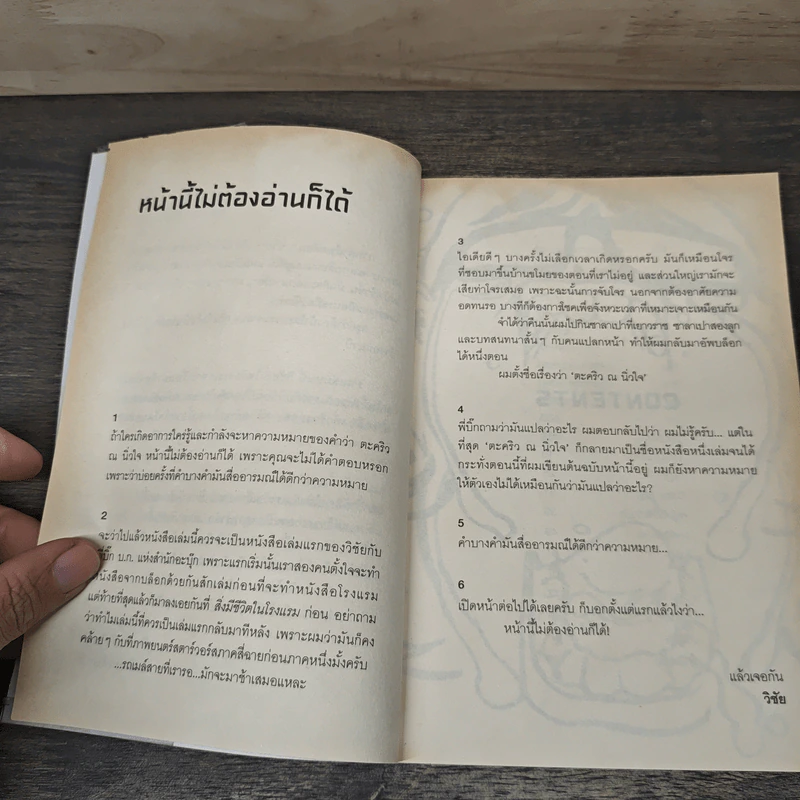 หน้านี้ไม่ต้องอ่านก็ได้
1
ถ้าใครเกิดอาการใคร่รู้และกำลังจะหาความหมายของคำว่า ตะคริว
ณ นิ่วใจ หน้านี้ไม่ต้องอ่านก็ได้ เพราะคุณจะไม่ได้คำตอบหรอก
เพราะว่าบ่อยครั้งที่คำบางคำมันสื่ออารมณ์ได้ดีกว่าความหมาย
2
จะว่าไปแล้วหนังสือเล่มนี้ควรจะเป็นหนังสือเล่มแรกของวิชัยกับ
พี่บิ๊ก บ.ก. แห่งสำนักอะบุ๊ก เพราะแรกเริ่มนั้นเราสองคนตั้งใจจะทำ
หนังสือจากบล็อกด้วยกันสักเล่มก่อนที่จะทำหนังสือโรงแรม
แต่ท้ายที่สุดแล้วก็มาลงเอยกันที่ สิ่งมีชีวิตในโรงแรม ก่อน อย่าถาม
ว่าทำไมเล่มนี้ที่ควรเป็นเล่มแรกกลับมาทีหลัง เพราะผมว่ามันก็คง
คล้ายๆ กับที่ภาพยนตร์สตาร์วอร์สภาคสี่ฉายก่อนภาคหนึ่งมั้งครับ
...รถเมล์สายที่เรารอ...มักจะมาช้าเสมอแหละ
3
ไอเดียดีๆ บางครั้งไม่เลือกเวลาเกิดหรอกครับ มันก็เหมือนโจร
ที่ชอบมาขึ้นบ้านขโมยของตอนที่เราไม่อยู่ และส่วนใหญ่เรามักจะ
เสียท่าโจรเสมอ เพราะฉะนั้นการจับโจร นอกจากต้องอาศัยความ
อดทนรอ บางทีก็ต้องการโชคเพื่อจังหวะเวลาที่เหมาะเจาะเหมือนกัน
จำได้ว่าคืนนั้นผมไปกินซาลาเปาที่เยาวราช ซาลาเปาสองลูก
และบทสนทนาสั้นๆ กับคนแปลกหน้า ทำให้ผมกลับมาอัพบล็อก
ได้หนึ่งตอน
ผมตั้งชื่อเรื่องว่า ‘ตะคริว ณ นิ่วใจ’
4
พี่บิ๊กถามว่ามันแปลว่าอะไร ผมตอบกลับไปว่า ผมไม่รู้ครับ... แต่ใน
ที่สุด ‘ตะคริว ณ นิ่วใจ’ ก็กลายมาเป็นชื่อหนังสือหนึ่งเล่มจนได้
กระทั่งตอนนี้ที่ผมเขียนต้นฉบับหน้านี้อยู่ ผมก็ยังหาความหมาย
ให้ตัวเองไม่ได้เหมือนกันว่ามันแปลว่าอะไร?
5
คำบางคำมันสื่ออารมณ์ได้ดีกว่าความหมาย...
6
เปิดหน้าต่อไปได้เลยครับ ก็บอกตั้งแต่แรกแล้วไงว่า...
หน้านี้ไม่ต้องอ่านก็ได้!
แล้วเจอกัน
วิชัย